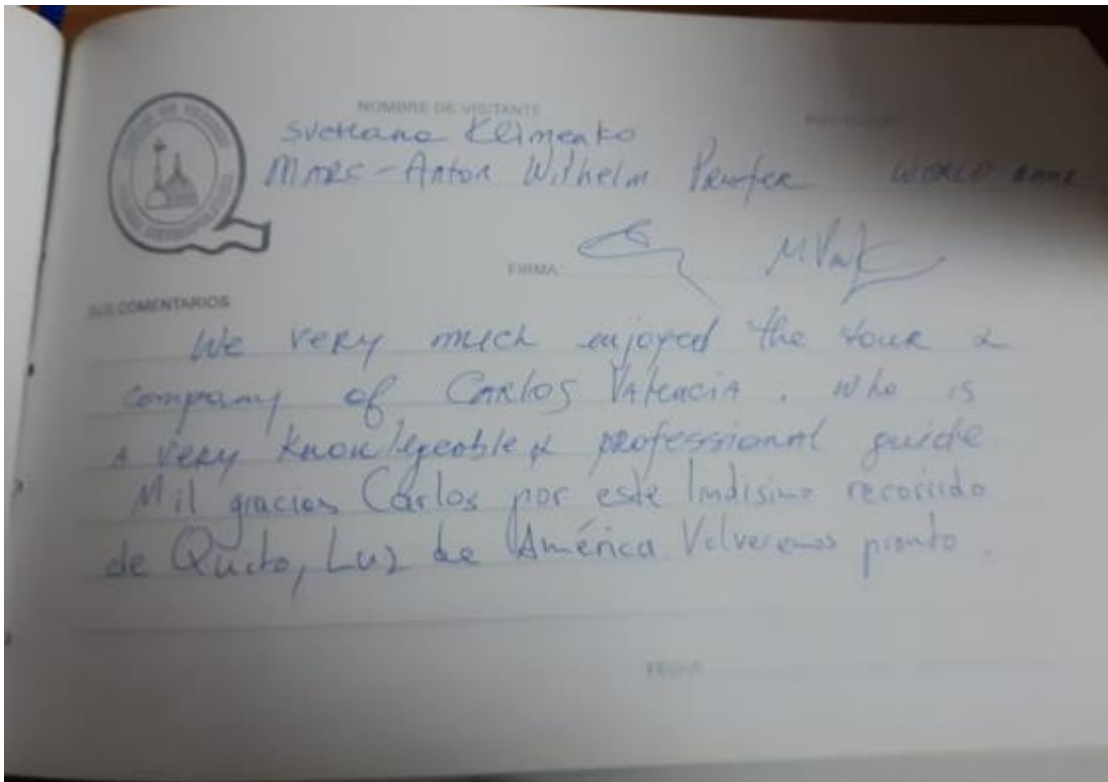 NOMBRE DE VISITANTE
Svetlana Klimenko
MARC-Anton Wilhelm WORLD BANK
FIRMA
SUS COMENTARIOS:
We very much enjoyed the tour &
company of Carlos Valencia. Who is
A very knowlgeable & professional guide
Mil gracias Carlos por este lindisimo recorrido
de Quito, Luz de América Volveremos pronto.
FECHA